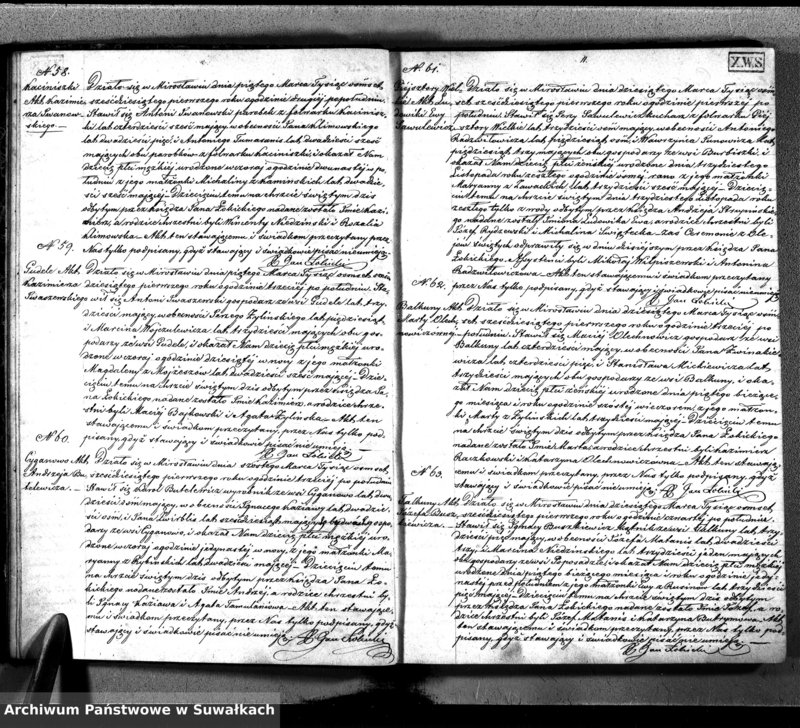 № 58.
Kaciniszki
Akt Kazimie
rza Iwanow-
skiego
Działo się w Mirosławiu dnia piątego Marca Tysiąc osmset
sześćdziesiątego pierwszego roku o godzinie drugiej po południu
Stawił się Antoni Iwanowski parobek z folwarku Kacinisz-
ki lat czterdzieści sześć mający, w obecności Jana Klimowskiego
lat dwadzieścia pięć i Antoniego lat dwadzieścia sześć
mających obu parobków z folwarku Kaciniszki i okazał Nam
dziecię płci męzkiej urodzone wczoraj o godzinie dwunastej w po-
łudniu z jego małżonki Michaliny z Kamińskich lat dwadzie-
ścia sześć mającej. Dziecięciu temu na chrzcie świętym dziś
odbytym przez Księdza Jana Łobickiego nadane zostało Imie Kazi-
mierz, a rodzice chrzestni byli Wincenty i Rozalia
Klimowska. Akt ten stawającemu i świadkom przeczytany przez
Nas tylko podpisany, gdyż stawający i świadkowie pisać nie umieją.
X Jan Łobicki
№ 59.
Gudele Akt
Kazimierza
Iwaszewskiego
Działo się w Mirosławiu dnia piątego Marca Tysiąc osmset sześć
dziesiątego pierwszego roku o godzinie trzeciej po południu. Sta-
wił się Antoni Iwaszewski gospodarz ze wsi Gudele lat trzy-
dzieści mający, w obecności Jerzego Żylińskiego lat pięćdziesiąt
i Marcina Wojciulewicza lat trzydzieści mających obu gos-
podarzy ze wsi Gudele, i okazał Nam dziecię płci męzkiej uro-
dzone wczoraj o godzinie dziesiątej w nocy z jego małżonki
Magdaleny z lat dwadzieścia sześć mającej. Dzie-
cięciu temu na chrzcie świętym dziś odbytym przez Księdza Ja-
na Łobickiego nadane zostało Imie Kazimierz, a rodzice chrze-
stni byli Maciej Bajkowski i Agata Żylińska. Akt ten
stawającemu i świadkom przeczytany, przez Nas tylko pod-
pisany, gdyż stawający i świadkowie pisać nie umieją.
X Jan Łobicki
№ 60.
Cyganowo Akt
Andrzeja Bu-
telewicza.
Działo się w Mirosławiu dnia szóstego Marca Tysiąc osmset
sześćdziesiątego pierwszego roku o godzinie trzeciej po południu
Stawił się Karol Butelewicz wyrobnik ze wsi Cyganowo lat dwa-
dzieścia ośm mający, w obecności Ignacego lat dwadzie-
ścia ośm, i Jana lat sześćdziesiąt mających obu gospo-
darzy ze wsi Cyganowo, i okazał Nam dziecię płci męzkiej uro-
dzone wczoraj o godzinie jedynastej w nocy, z jego małżonki Ma-
ryanny z Rybińskich lat dwadzieścia mającej. Dziecięciu temu
na chrzcie świętym dziś odbytym przez Księdza Jana Ło-
bickiego nadane zostało Imie Andrzej, a rodzice chrzestni by-
li Ignacy i Agata. Akt ten stawające-
mu i świadkom przeczytany, przez Nas tylko podpisany, gdyż
stawający i świadkowie pisać nie umieją.
X Jan Łobicki
11.
X.W.S
№ 61.
Akt Lu-
dwiki Ewy
Sawulewicz
Działo się w Mirosławiu dnia dziesiątego Marca Tysiąc osm-
set sześćdziesiątego pierwszego roku o godzinie pierwszej po
południu. Stawił się Jerzy Sawulewicz kucharz z folwarku
lat trzydzieści ośm mający, w obecności Antoniego
Radziwiłowicza lat pięćdziesiąt ośm, i Wawrzyńca lat
pięćdziesiąt trzy mających obu gospodarzy ze wsi Burbiszki, i
okazał Nam dziecię płci żeńskiej urodzone dnia trzydziestego
Listopada roku zeszłego o godzinie ósmej rano z jego małżonki
Maryanny z lat trzydzieści sześć mającej. Dziecię-
ciu temu na chrzcie świętym dnia trzydziestego Listopada roku
zeszłego tylko z wody odbytym przez Księdza Andrzeja
nadane zostały Imiona Ludwika Ewa, a rodzice chrzestni byli
Józef Rydzewski i Michalina, zaś Ceremonie z Ole-
jów Świętych odprawiły się w dniu dzisiejszym przez Księdza Jana
Łobickiego. Assystenci byli Mikołaj i Antonina
Radziwiłowiczowa. Akt ten stawającemu i świadkom przeczytany
przez Nas tylko podpisany, gdyż stawający i świadkowie pisać nie umieją.
X Jan Łobicki
№ 62.
Balkuny Akt
Marty Olech-
nowiczowny
Działo się w Mirosławiu dnia dziesiątego Marca Tysiąc osm-
set sześćdziesiątego pierwszego roku o godzinie trzeciej po
południu. Stawił się Maciej Olechnowicz gospodarz ze wsi
Balkuny lat czterdzieści mający, w obecności Jana
lat czterdzieści pięć i Stanisława Mickiewicza lat
trzydzieści mających obu gospodarzy ze wsi Balkuny, i oka-
zał Nam dziecię płci żeńskiej urodzone dnia piątego bieżące-
go miesiąca i roku o godzinie szóstej wieczorem, z jego małżon-
ki Marty z Żylińskich lat trzydzieści mającej. Dziecięciu temu
na chrzcie świętym dziś odbytym przez Księdza Jana Łobickiego
nadane zostało Imie Marta, a rodzice chrzestni byli Kazimierz
Raczkowski i Katarzyna Olechnowiczowna. Akt ten stawają-
cemu i świadkom przeczytany, przez Nas tylko podpisany, gdyż
stawający i świadkowie pisać nie umieją.
X Jan Łobicki
№ 63.
Balkuny Akt
Józefa Busz-
kiewicza
Działo się w Mirosławiu dnia dziesiątego Marca Tysiąc osm-
set sześćdziesiątego pierwszego roku o godzinie czwartej po południu.
Stawił się Ignacy Buszkiewicz ze wsi Balkuny lat trzy-
dzieści pięć mający, w obecności Józefa Matanis lat dwadzieścia
trzy, i Marcina lat trzydzieści jeden mających
obu gospodarzy ze wsi, i okazał Nam dziecię płci męzkiej
urodzone dnia piątego bieżącego miesiąca i roku o godzinie jedy-
nastej przed południem, z jego małżonki Ewy lat trzydzieści
pięć mającej. Dziecięciu temu na chrzcie świętym dziś odbytym
przez Księdza Jana Łobickiego nadane zostało Imie Józef, a ro-
dzice chrzestni byli Józef Matanis i Katarzyna. Akt
ten stawającemu i świadkom przeczytany, przez Nas tylko pod-
pisany, gdyż stawający i świadkowie pisać nie umieją.
X Jan Łobicki
Archiwum Państwowe w Suwałkach